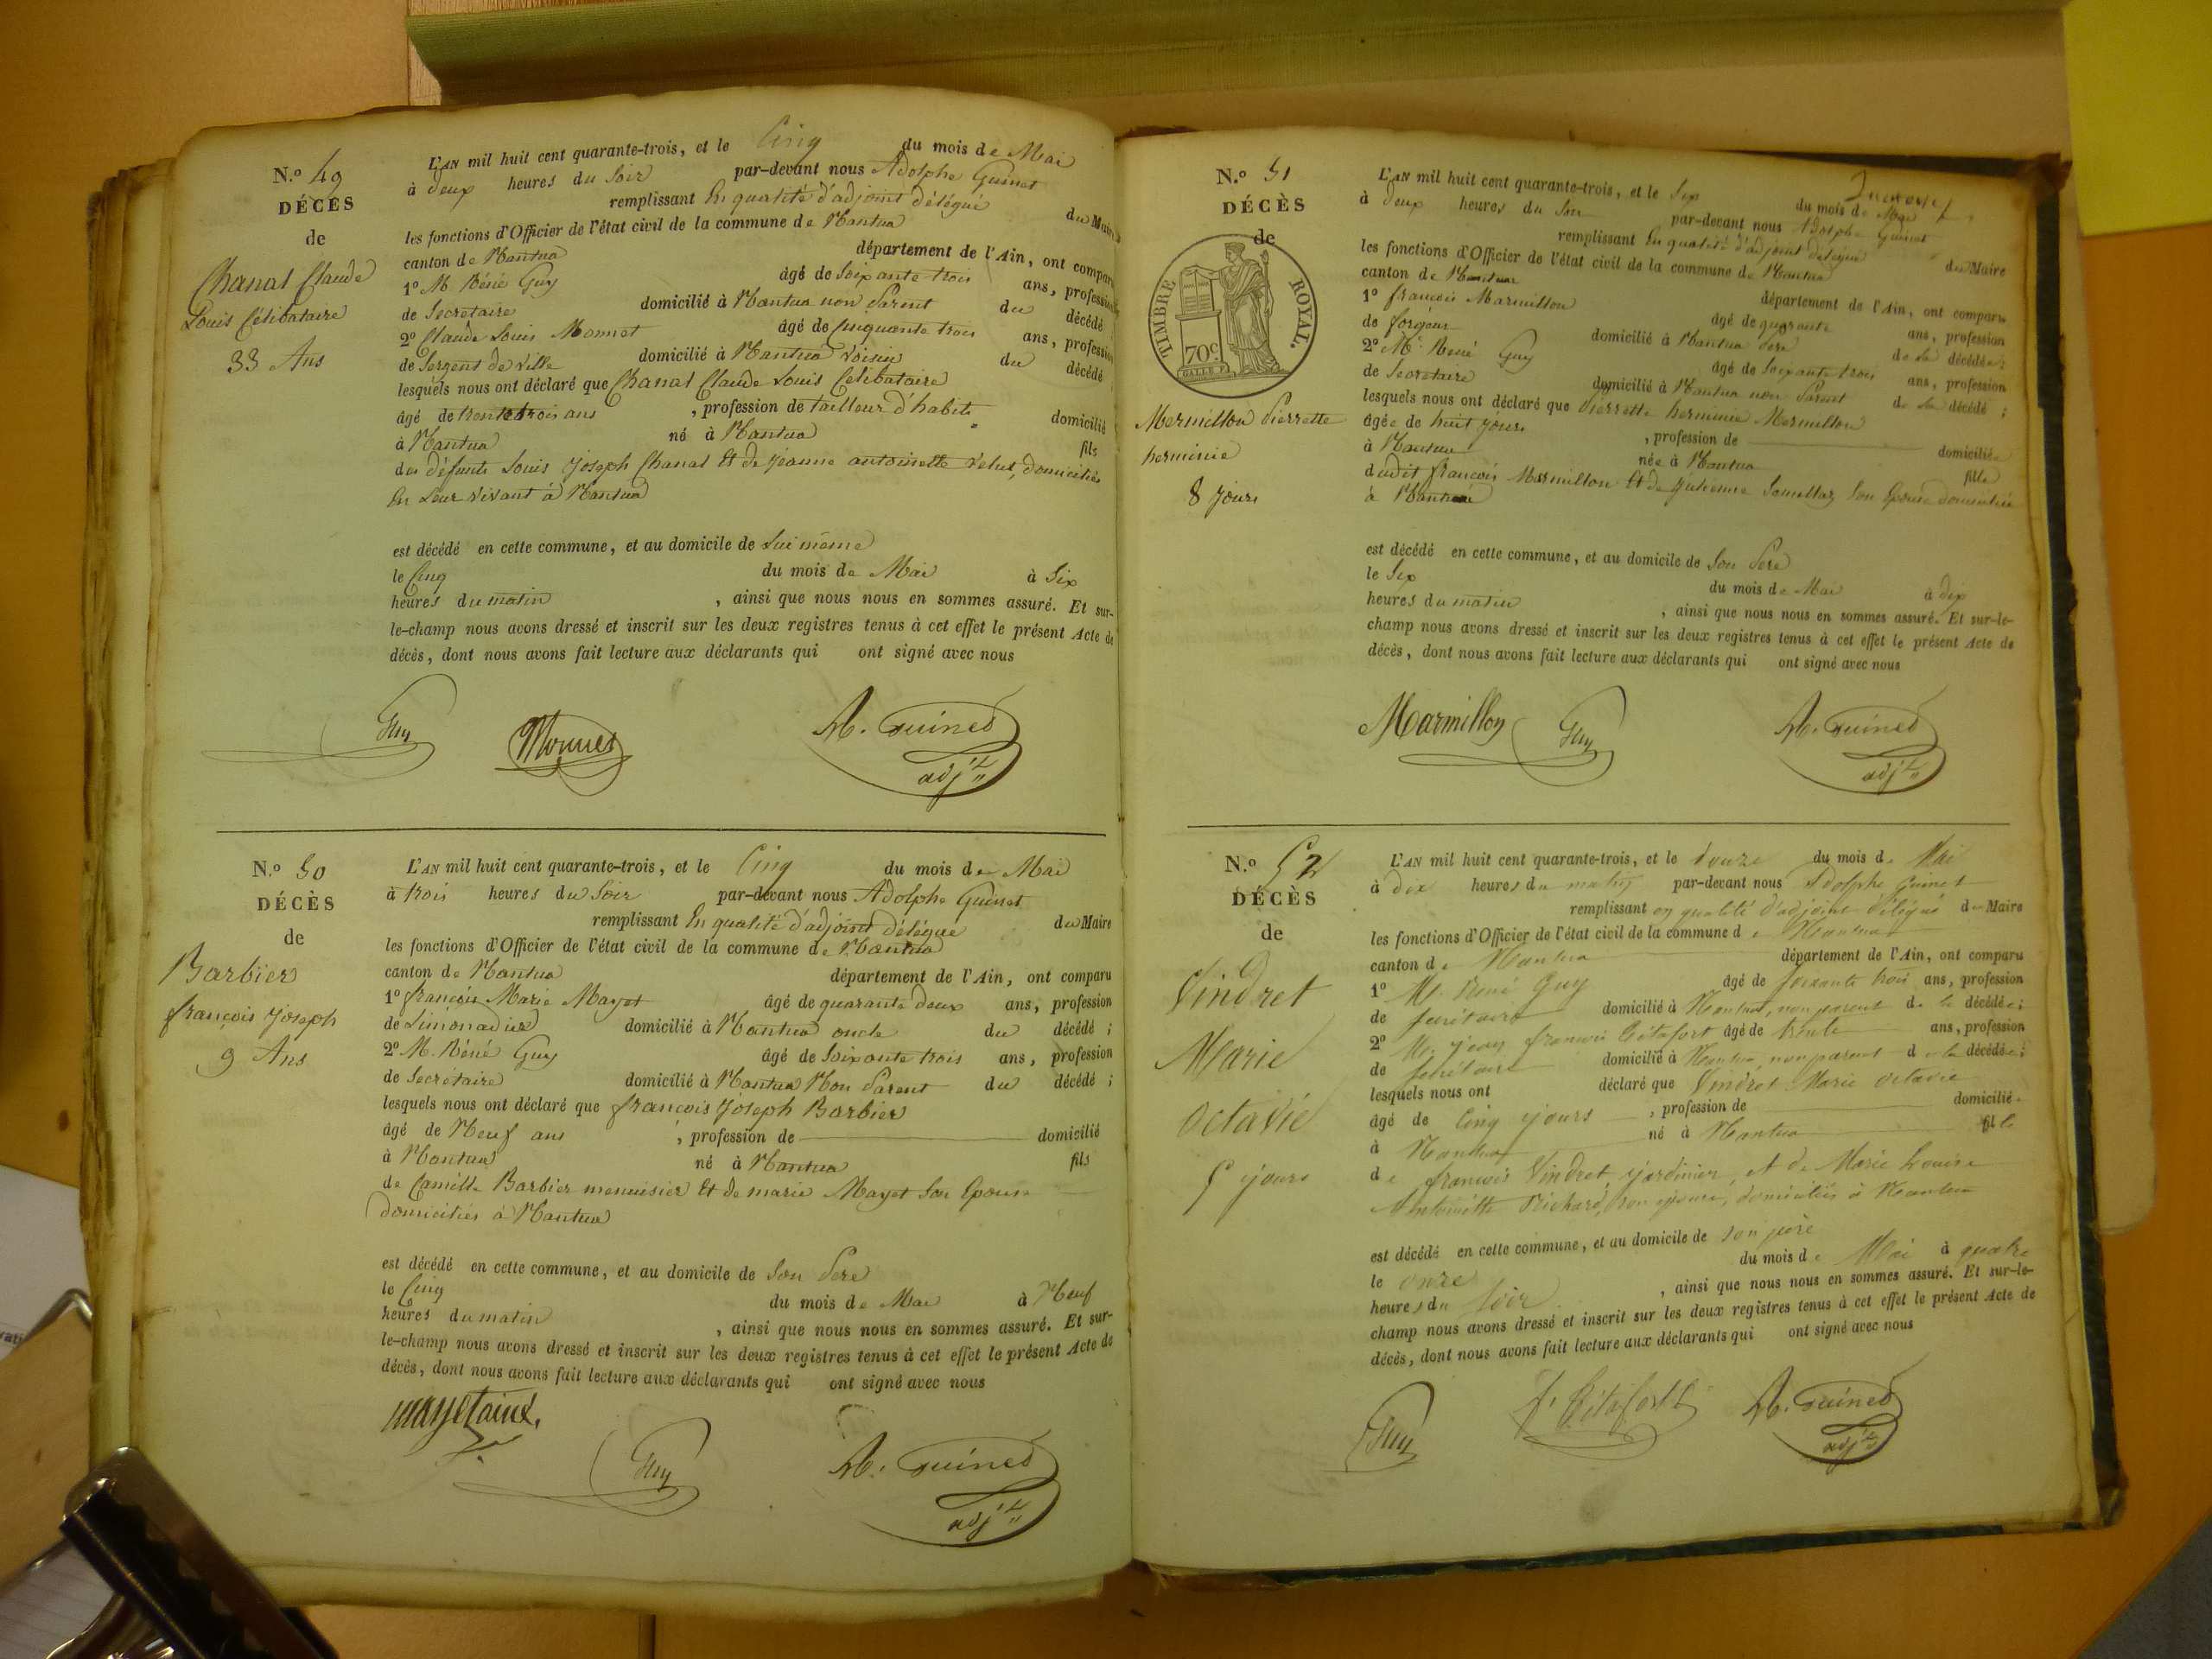 N.º 49
DÉCÈS
de
Chanal Claude
Louis Célibataire
33 Ans
L'AN mil huit cent quarante-trois, et le Cinq du mois de Mai
à deux heures du Soir par-devant nous Adolphe Guinet
remplissant En qualité d'adjoint délégué du Maire
les fonctions d'Officier de l'état civil de la commune de Nantua
canton de Nantua département de l'Ain, ont comparu
1º M. Réné Guy âgé de Soixante trois ans, profession
de Secretaire domicilié à Nantua non Parent du décédé
2º Claude Louis Monnet âgé de Cinquante trois ans, profession
de Sergent de Ville domicilié à Nantua Voisin du décédé
lesquels nous ont déclaré que Chanal Claude Louis Célibataire
âgé de trente trois ans , profession de tailleur d'habits domicilié
à Nantua né à Nantua fils
des défunts Louis Joseph Chanal Et de Jeanne antoinette Velut, domiciliés
En Leur Vivant à Nantua
est décédé en cette commune, et au domicile de Lui même
le Cinq du mois de Mai à Six
heures du matin , ainsi que nous nous en sommes assuré. Et sur-
le-champ nous avons dressé et inscrit sur les deux registres tenus à cet effet le présent Acte de
décès, dont nous avons fait lecture aux déclarants qui ont signé avec nous
Guy Monnet A. Guinet
adjt
N.º 50
DÉCÈS
de
Barbier
françois Joseph
9 Ans
L'AN mil huit cent quarante-trois, et le Cinq du mois de Mai
à trois heures du Soir par-devant nous Adolphe Guinet
remplissant En qualité d'adjoint délégué du Maire
les fonctions d'Officier de l'état civil de la commune de Nantua
canton de Nantua département de l'Ain, ont comparu
1º françois Marie Mayet âgé de quarante deux ans, profession
de Limonadier domicilié à Nantua oncle du décédé ;
2º M. Réné Guy âgé de Soixante trois ans, profession
de Secrétaire domicilié à Nantua Non Parent du décédé ;
lesquels nous ont déclaré que françois Joseph Barbier
âgé de Neuf ans , profession de domicilié
à Nantua né à Nantua fils
de Camille Barbier menuisier Et de marie Mayet Son Epouse
domiciliés à Nantua
est décédé en cette commune, et au domicile de Son Pere
le Cinq du mois de Mai à Neuf
heures du matin , ainsi que nous nous en sommes assuré. Et sur-
le-champ nous avons dressé et inscrit sur les deux registres tenus à cet effet le présent Acte de
décès, dont nous avons fait lecture aux déclarants qui ont signé avec nous
Guy A. Guinet
adjt
N.º 51
DÉCÈS
de
TIMBRE ROYAL.
70c
Mermillon Pierrette
herminie
8 Jours
L'AN mil huit cent quarante-trois, et le Six du mois de Mai
à deux heures du Soir par-devant nous Adolphe Guinet
remplissant En qualité d'adjoint délégué du Maire
les fonctions d'Officier de l'état civil de la commune de Nantua
canton de Nantua département de l'Ain, ont comparu
1º françois Marmillon âgé de quarante ans, profession
de forgeur domicilié à Nantua Pere de La décédée ;
2º Mr. Réné Guy âgé de Soixante trois ans, profession
de Secretaire domicilié à Nantua non Parent de La décédé ;
lesquels nous ont déclaré que Pierrette herminie Mermillon
âgée de huit Jours , profession de domiciliée
à Nantua née à Nantua fille
dudit françois Marmillon Et de Julienne Son Epouse domiciliés
à Nantua
est décédé en cette commune, et au domicile de Son Pere
le Six du mois de Mai à dix
heures du matin , ainsi que nous nous en sommes assuré. Et sur-le-
champ nous avons dressé et inscrit sur les deux registres tenus à cet effet le présent Acte de
décès, dont nous avons fait lecture aux déclarants qui ont signé avec nous
Marmillon Guy A. Guinet
adjt
N.º 52
DÉCÈS
de
Vindret
Marie
Octavie
5 jours
L'AN mil huit cent quarante-trois, et le douze du mois de Mai
à dix heures du matin par-devant nous Adolphe Guinet
remplissant en qualité d'adjoint délégué du Maire
les fonctions d'Officier de l'état civil de la commune de Nantua
canton de Nantua département de l'Ain, ont comparu
1º Mr. René Guy âgé de soixante trois ans, profession
de secrétaire domicilié à Nantua, non parent de la décédée ;
2º Mr. jean françois Bétafort âgé de trente ans, profession
de secrétaire domicilié à Nantua, non parent de la décédée ;
lesquels nous ont déclaré que Vindret Marie octavie
âgé de cinq jours , profession de domicilié
à Nantua né à Nantua fille
de françois Vindret, jardinier, et de Marie Louise
Antoinette Richard, son épouse, domiciliés à Nantua
est décédé en cette commune, et au domicile de son père
le onze du mois de Mai à quatre
heures du soir , ainsi que nous nous en sommes assuré. Et sur-le-
champ nous avons dressé et inscrit sur les deux registres tenus à cet effet le présent Acte de
décès, dont nous avons fait lecture aux déclarants qui ont signé avec nous
Guy A. Guinet
adjt